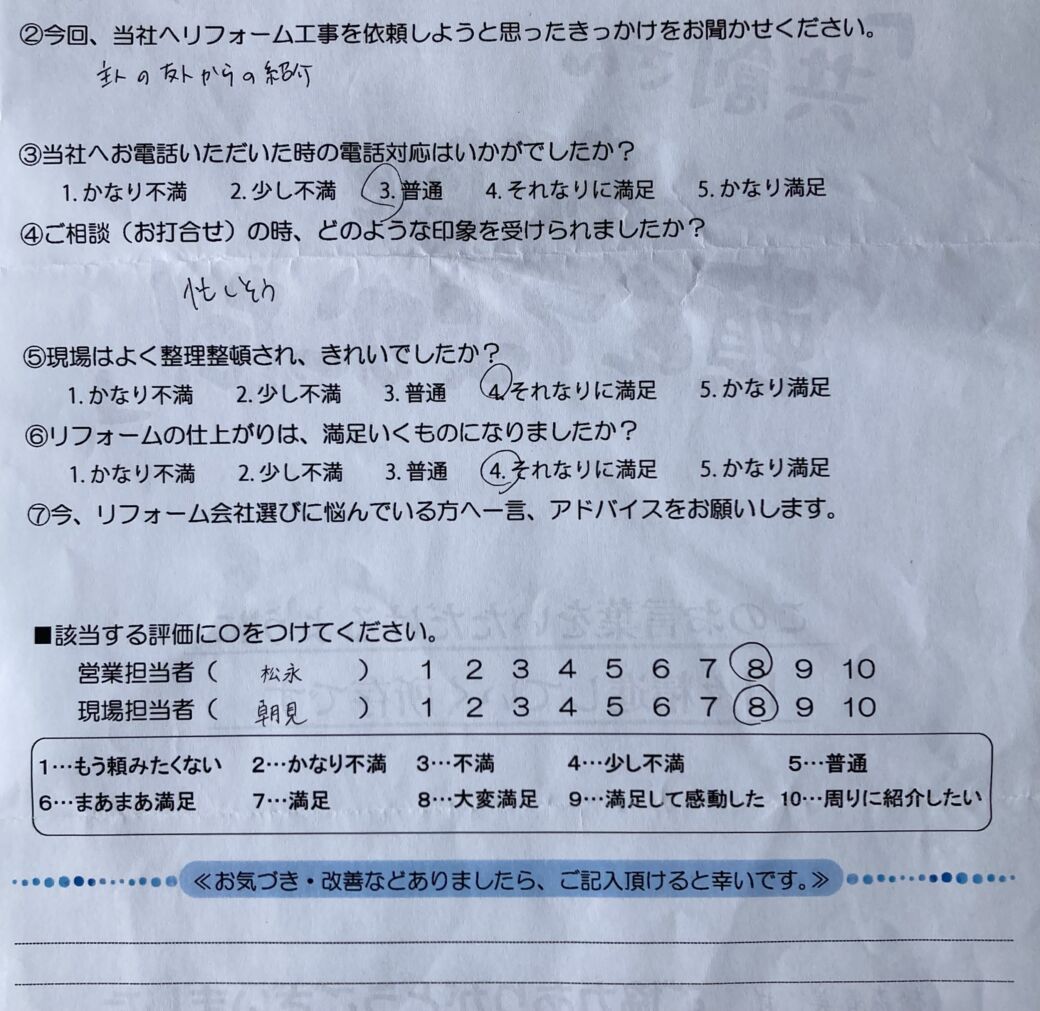 ②今回、当社へリフォーム工事を依頼しようと思ったきっかけをお聞かせください。
主人の友人からの紹介
③当社へお電話いただいた時の電話対応はいかがでしたか?
1.かなり不満 2.少し不満 3.普通 4.それなりに満足 5.かなり満足
④ご相談(お打合せ)の時、どのような印象を受けられましたか?
忙しそう
⑤現場はよく整理整頓され、きれいでしたか?
1.かなり不満 2.少し不満 3.普通 4.それなりに満足 5.かなり満足
⑥リフォームの仕上がりは、満足いくものになりましたか?
1.かなり不満 2.少し不満 3.普通 4.それなりに満足 5.かなり満足
⑦今、リフォーム会社選びに悩んでいる方へ一言、アドバイスをお願いします。
■該当する評価に○をつけてください。
営業担当者( 松永 ) 1 2 3 4 5 6 7 8 9 10
現場担当者( 朝見 ) 1 2 3 4 5 6 7 8 9 10
1…もう頼みたくない 2…かなり不満 3…不満 4…少し不満 5…普通
6…まあまあ満足 7…満足 8…大変満足 9…満足して感動した 10…周りに紹介したい
≪お気づき・改善などありましたら、ご記入頂けると幸いです。≫